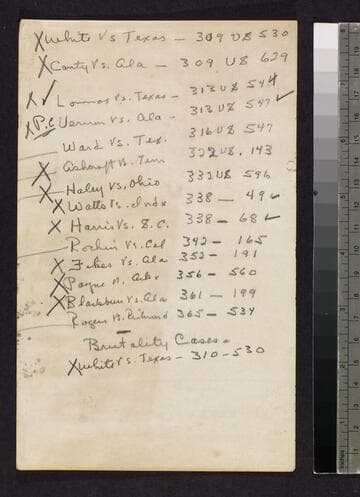 X White vs Texas - 309 US 530
X Canty vs. Ala - 309 US 629
X ✓ Lomax vs. Texas - 313 US 544
X P.C. Vernon vs. Ala - 313 US 547 ✓
Ward vs. Tex. 316 US 547
X Ashcraft vs. Tenn 322 US. 143
X Haley vs. Ohio 332 US 596
X Watts vs. Indx 338 - 49 ✓
X Harris vs. S.C. 338 - 68 ✓
Rochin vs. Cal 342 - 165
X Fikes vs. Ala 352 - 191
X Payne vs. Ark 356 - 560
X Blackburn vs. Ala 361 - 199
Rogers vs. Richmond 365 - 534
Brutality Cases.
X White vs. Texas - 310-530
inches